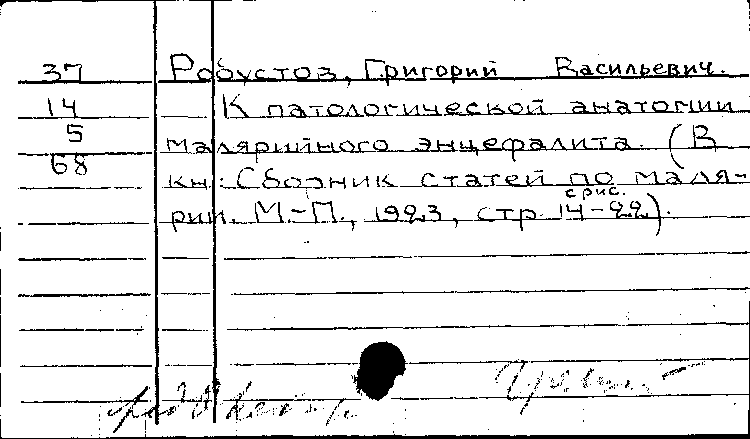 37 Робустов, Григорий Васильевич.
14 К патологической анатомии
5 малярийного энцефалита. (В
68 кн: Сборник статей по маля-
с рис.
рии. М.-П., 1923, стр. 14-22).